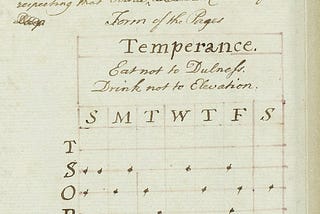 respecting that
Form of the Pages
Temperance.
Eat not to Dulness.
Drink not to Elevation.
S M T W T F S
T
S
O
R